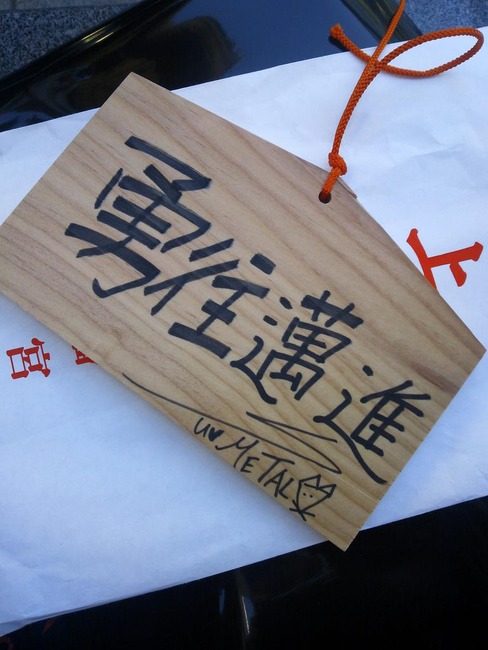 勇往邁進
U♥METAL
上
宮